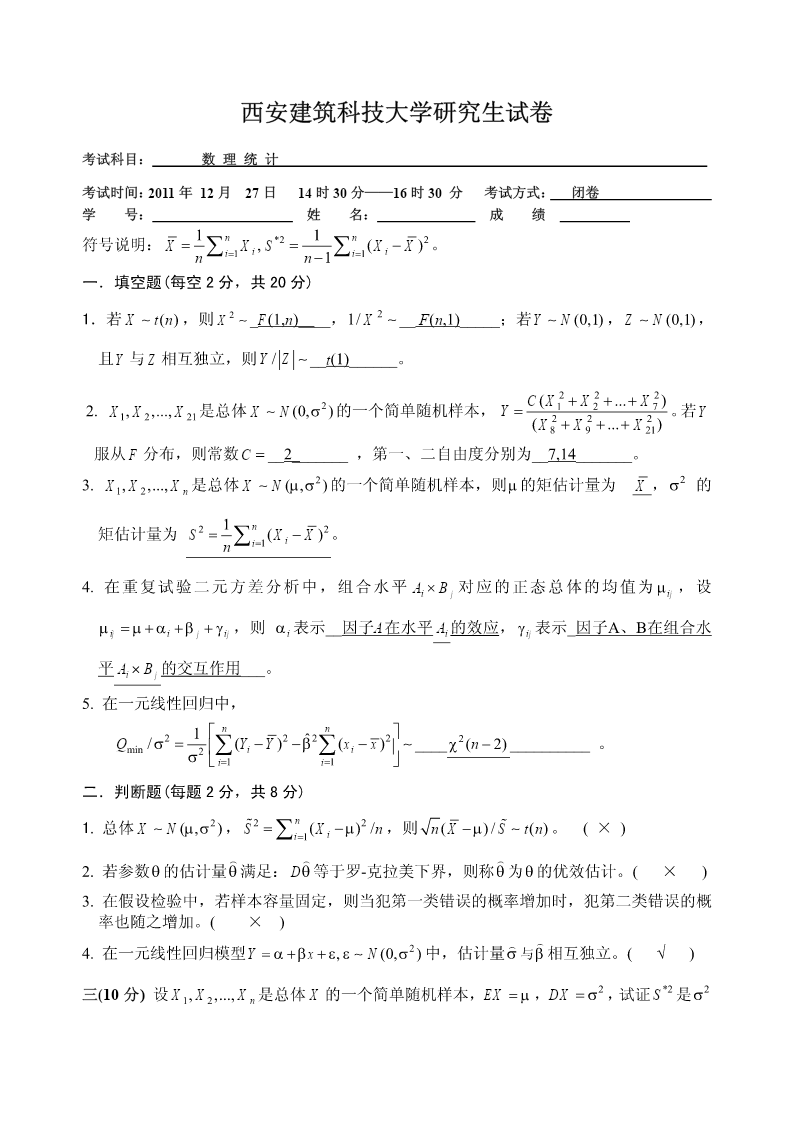 西安建筑科技大学研究生试卷
考试科目： 数 理 统 计
考试时间：2011 年 12 月 27 日 14 时 30 分——16 时 30 分 考试方式： 闭卷
学 号： 姓 名： 成 绩
符号说明： X̄ = 1/n ∑_{i=1}^{n} X_i , S^{*2} = 1/(n−1) ∑_{i=1}^{n} (X_i − X̄)^2 。
一．填空题(每空 2 分，共 20 分)
1．若 X ~ t(n) ，则 X^2 ~ _F(1,n)____ ，1/ X^2 ~ __F(n,1)_____；若 Y ~ N (0,1) ，Z ~ N (0,1) ，
且 Y 与 Z 相互独立，则 Y / |Z| ~ __t(1)______。
2. X_1, X_2,..., X_21 是总体 X ~ N (0,σ^2) 的一个简单随机样本， Y = C(X_1^2 + X_2^2 + ... + X_7^2) / (X_8^2 + X_9^2 + ... + X_21^2) 。若 Y
服从 F 分布，则常数 C = __2_______ ，第一、二自由度分别为__7,14_______。
3. X_1, X_2,..., X_n 是总体 X ~ N (μ,σ^2) 的一个简单随机样本，则 μ 的矩估计量为 X̄ ，σ^2 的
矩估计量为 S^2 = 1/n ∑_{i=1}^{n} (X_i − X̄)^2 。
4. 在重复试验二元方差分析中，组合水平 A_i × B_j 对应的正态总体的均值为 μ_ij ，设
μ_ij = μ + α_i + β_j + γ_ij ，则 α_i 表示__因子A在水平 A_i 的效应，γ_ij 表示_因子A、B在组合水
平 A_i × B_j 的交互作用___。
5. 在一元线性回归中，
Q_min / σ^2 = 1/σ^2 [ ∑_{i=1}^{n} (Y_i − Ȳ)^2 − β̂^2 ∑_{i=1}^{n} (x_i − x̄)^2 ] ~ ____χ^2(n − 2)__________ 。
二．判断题(每题 2 分，共 8 分)
1. 总体 X ~ N (μ,σ^2) ，S̃^2 = ∑_{i=1}^{n} (X_i − μ)^2 / n ，则 √n (X̄ − μ) / S̃ ~ t(n) 。 ( × )
2. 若参数 θ 的估计量 θ̂ 满足：Dθ̂ 等于罗-克拉美下界，则称 θ̂ 为 θ 的优效估计。( × )
3. 在假设检验中，若样本容量固定，则当犯第一类错误的概率增加时，犯第二类错误的概
率也随之增加。( × )
4. 在一元线性回归模型 Y = α + βx + ε, ε ~ N (0,σ^2) 中，估计量 σ̂ 与 β̂ 相互独立。( √ )
三(10 分) 设 X_1, X_2,..., X_n 是总体 X 的一个简单随机样本，EX = μ ，DX = σ^2 ，试证 S^{*2} 是 σ^2